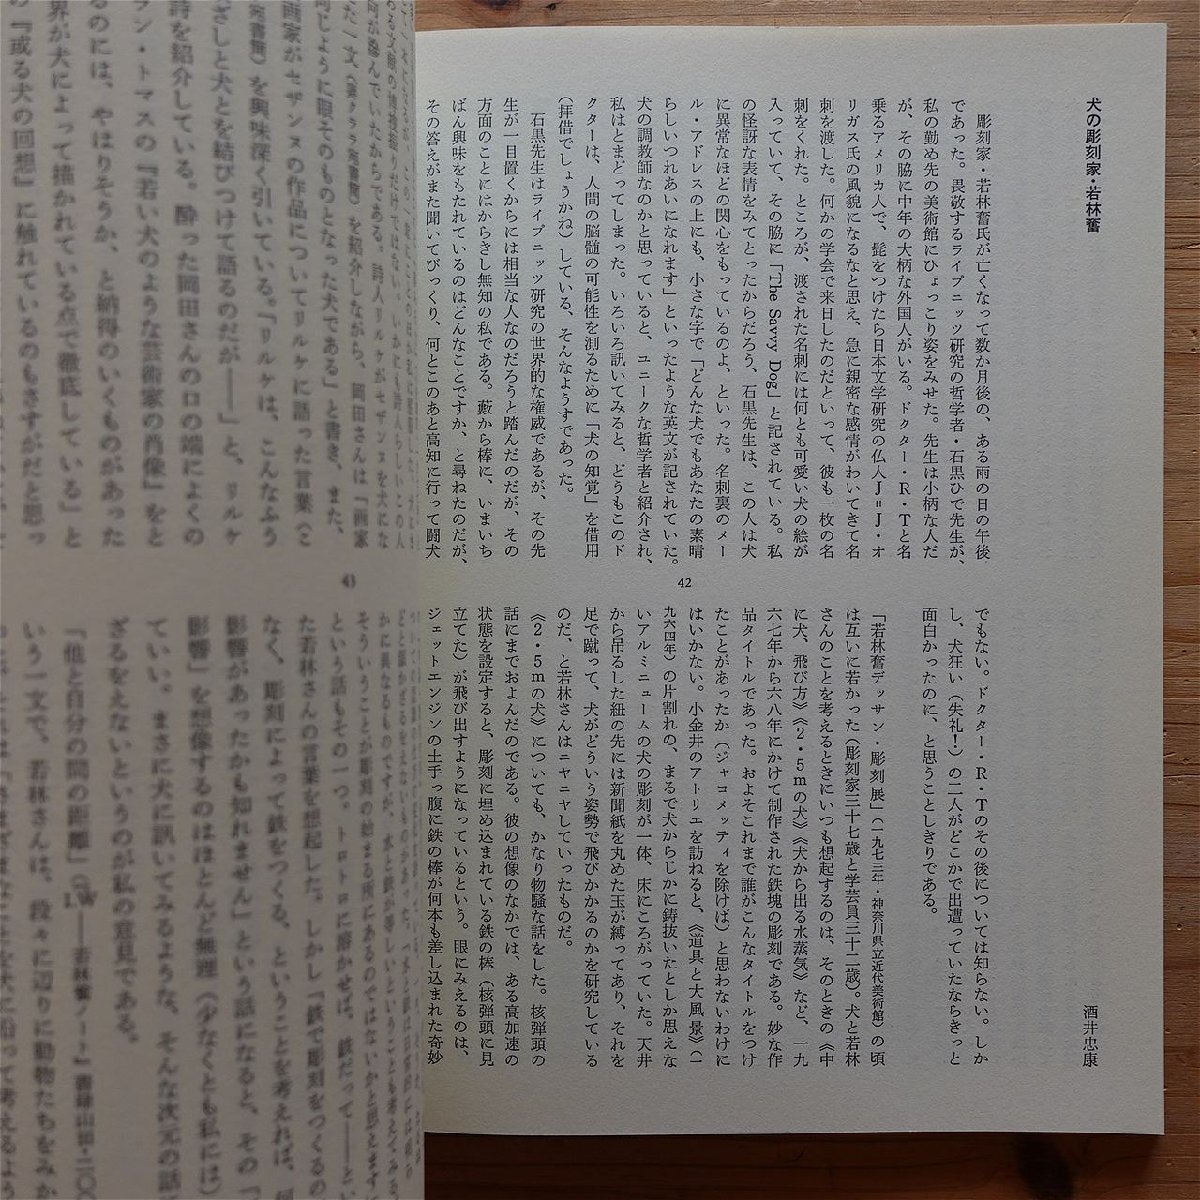 犬の彫刻家・若林奮
酒井忠康
彫刻家・若林奮氏が亡くなって数か月後の、ある雨の日の午後
であった。畏敬するライプニッツ研究の哲学者・石黒ひで先生が、
私の勤め先の美術館にひょっこり姿をみせた。先生は小柄な人だ
が、その脇に中年の大柄な外国人がいる。ドクター・R・Tと名
乗るアメリカ人で、髭をつけたら日本文学研究の仏人J=J・オ
リガス氏の風貌になるなと思え、急に親密な感情がわいてきて名
刺を渡した。何かの学会で来日したのだといって、彼も一枚の名
刺をくれた。ところが、渡された名刺には何とも可愛い犬の絵が
入っていて、その脇に「The Savvy Dog」と記されている。私
の怪訝な表情をみてとったからだろう、石黒先生は、この人は犬
に異常なほどの関心をもっているのよ、といった。名刺裏のメー
ル・アドレスの上にも、小さな字で「どんな犬でもあなたの素晴
らしいつれあいになれます」といったような英文が記されていた。
犬の調教師なのかと思っていると、ユニークな哲学者と紹介され、
私はとまどってしまった。いろいろ訊いてみると、どうもこのド
クターは、人間の脳髄の可能性を測るために「犬の知覚」を借用
(拝借でしょうかね)している、そんなようすであった。
石黒先生はライプニッツ研究の世界的な権威であるが、その先
生が一目置くからには相当な人なのだろうと踏んだのだが、その
方面のことにはからきし無知の私である。藪から棒に、いまいち
ばん興味をもたれているのはどんなことですか、と尋ねたのだが、
その答えがまた聞いてびっくり、何とこのあと高知に行って闘犬
42
でもない。ドクター・R・Tのその後については知らない。しか
し、犬狂い(失礼!)の二人がどこかで出遭っていたならきっと
面白かったのに、と思うことしきりである。
「若林奮デッサン・彫刻展」(一九七三年・神奈川県立近代美術館)の頃
は互いに若かった(彫刻家三十七歳と学芸員三十二歳)。犬と若林
さんのことを考えるときにいつも想起するのは、そのときの《中
に犬、飛び方》《2・5mの犬》《犬から出る水蒸気》など、一九
六七年から六八年にかけて制作された鉄塊の彫刻である。妙な作
品タイトルであった。およそこれまで誰がこんなタイトルをつけ
たことがあったか(ジャコメッティを除けば)と思わないわけに
はいかない。小金井のアトリエを訪ねると、《道具と大風景》(一
九六四年)の片割れの、まるで犬からじかに鋳抜いたとしか思えな
いアルミニュームの犬の彫刻が一体、床にころがっていた。天井
から吊るした紐の先には新聞紙を丸めた玉が縛ってあり、それを
足で蹴って、犬がどういう姿勢で飛びかかるのかを研究している
のだ、と若林さんはニヤニヤしていったものだ。
《2・5mの犬》についても、かなり物騒な話をした。核弾頭の
話にまでおよんだのである。彼の想像のなかでは、ある高加速の
状態を設定すると、彫刻に埋め込まれている鉄の棒(核弾頭に見
立てた)が飛び出すようになっているという。眼にみえるのは、
ジェットエンジンの土手っ腹に鉄の棒が何本も差し込まれた奇妙
同じように眼そのものとなった犬である」と書き、また、
を紹介しながら、岡田さんは「画家
画家がセザンヌの作品についてリルケに語った言葉(
を興味深く引いている。「リルケは、こんなふう
ざしと犬とを結びつけて語るのだが――」と、リルケ
詩を紹介している。酔った岡田さんの口の端によくの
ン・トマスの『若い犬のような芸術家の肖像』をと
るのには、やはりそうか、と納得のいくものがあった
界が犬によって描かれている点で徹底している」と
『或る犬の回想』に触れているのもさすがだと思っ
43
という話もその一つ。トロトロに溶かせば、鉄だって――とい
た若林さんの言葉を想起した。しかし「鉄で彫刻をつくるの
なく、彫刻によって鉄をつくる、ということを考えれば、何
影響があったかも知れません」という話になると、その「
影響」を想像するのはほとんど無理(少なくとも私には)
ていい。まさに犬に訊いてみるような、そんな次元の話
ざるをえないというのが私の意見である。
「他と自分の間の距離」(『I.W――若林奮ノート』書肆山田・二〇〇
いう一文で、若林さんは、段々に辺りに動物たちをみか